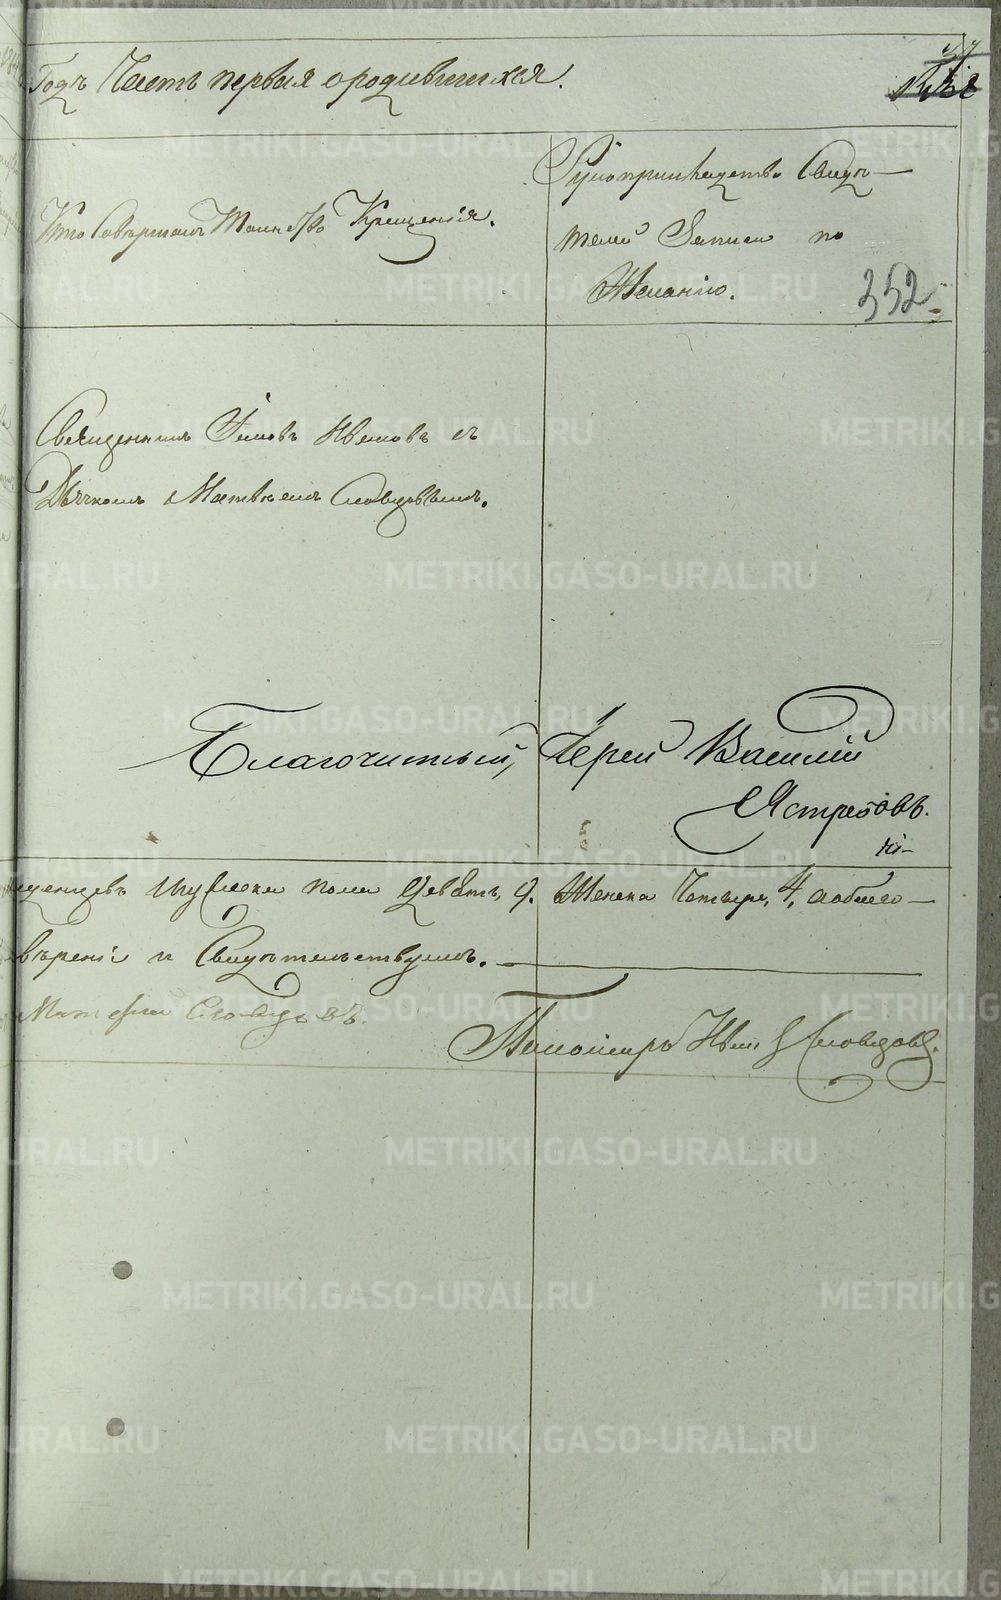 Годъ Часть первая о родившихся.
Кто Совершалъ Таинство Крещенія.
Рукоприкладство Свидѣ-
телей Записи по
Желанію.
352
Священникъ Іаковъ Ивановъ съ
Дьячкомъ Матвѣемъ Словцовымъ.
Благочинный, Іерей Василій
Ястребовъ.
Мужеска пола девять, 9. Женска Четыре, 4,
вѣреніи и Свидѣтельствуемъ.
Словцовъ.
Пономарь Словцовъ.
METRIKI.GASO-URAL.RU